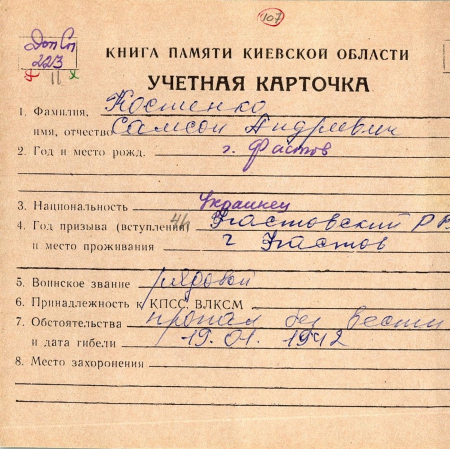 107
Доп Сп
223
11
КНИГА ПАМЯТИ КИЕВСКОЙ ОБЛАСТИ
УЧЕТНАЯ КАРТОЧКА
1. Фамилия, Костенко
имя, отчество Самсон Андреевич
2. Год и место рожд. г. Фастов
3. Национальность украинец
4. Год призыва (вступления) 41 Фастовский РВ
и место проживания г Фастов
5. Воинское звание рядовой
6. Принадлежность к КПСС, ВЛКСМ
7. Обстоятельства пропал без вести
и дата гибели 19.01.1942
8. Место захоронения